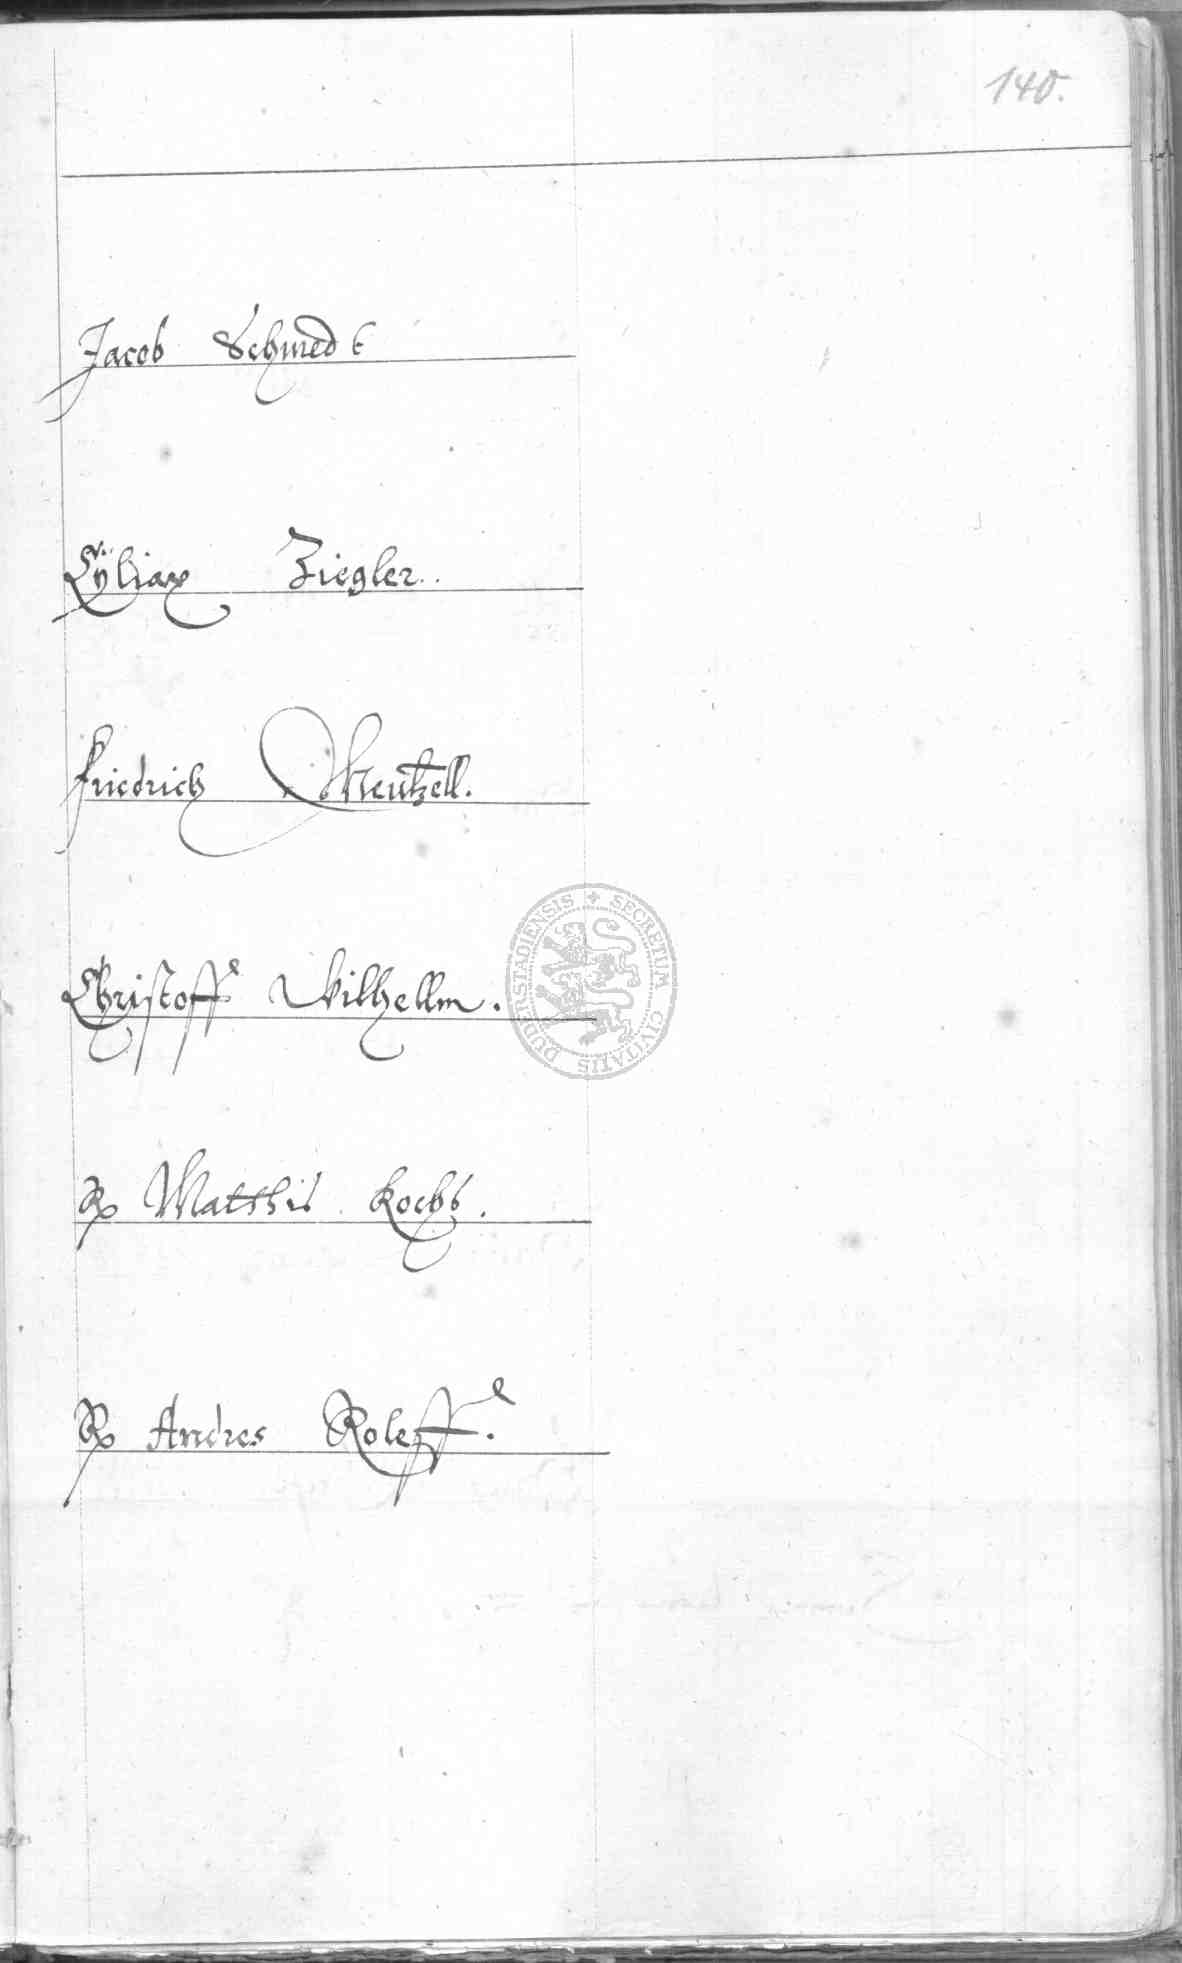 140.
Jacob Schmedt
Ziegler..
Friedrich Wentzell.
Christoff Wilhellm.
SECRETUM CIVITATIS DUDERSTADIENSIS
Matthis Kochs.
Andres Roleff.